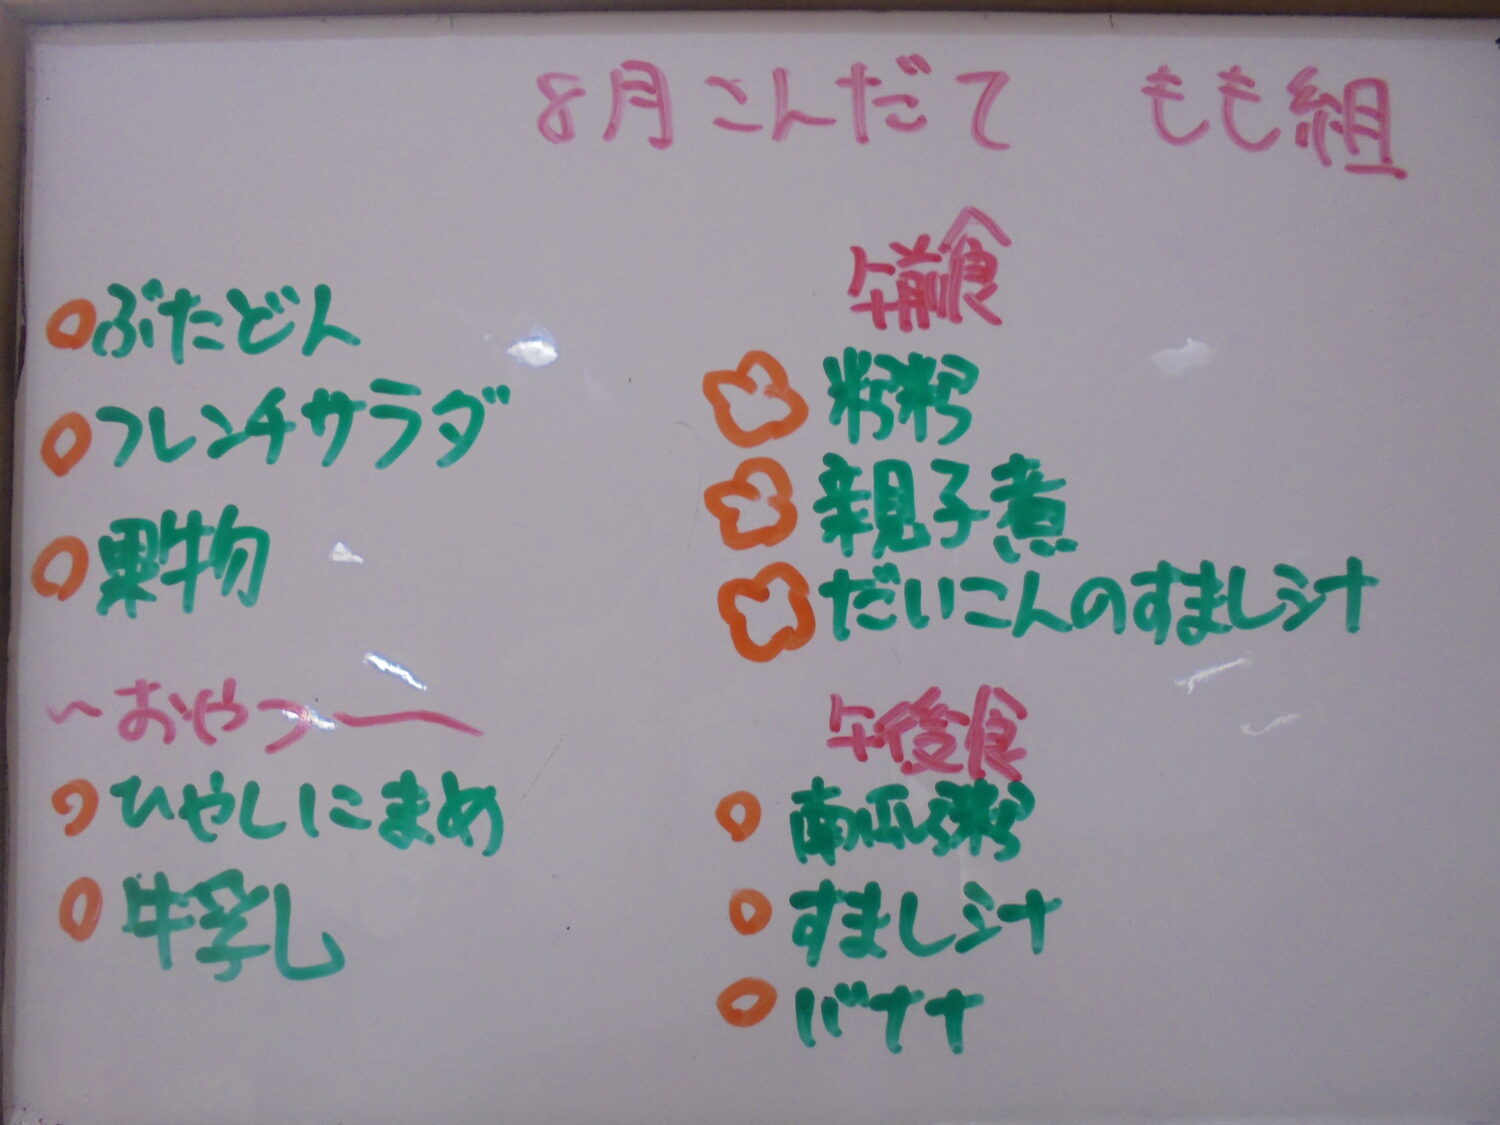 8月こんだて もも組
ぶたどん
フレンチサラダ
果物
〜おやつ〜
ひやしにまめ
牛乳
午前食
粥
親子煮
だいこんのすまし汁
午後食
南瓜粥
すまし汁
バナナ